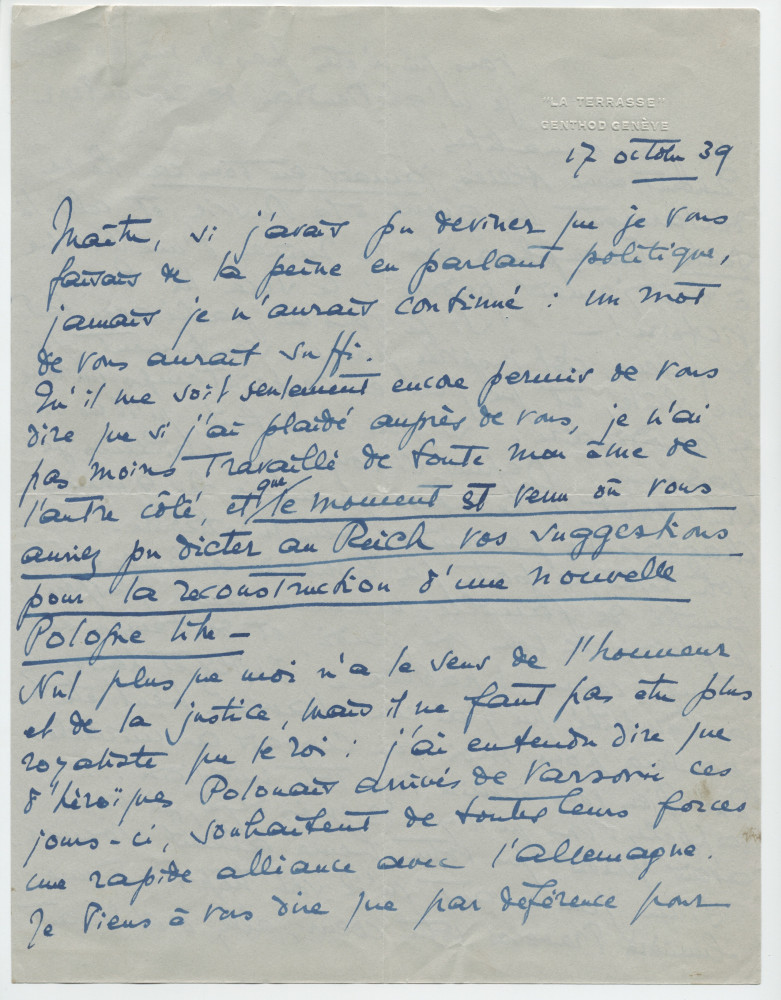 "LA TERRASSE"
GENTHOD GENÈVE
17 octobre 39
Maître, si j'avais pu deviner que je vous
faisais de la peine en parlant politique,
jamais je n'aurais continué : un mot
de vous aurait suffi.
Qu'il me soit seulement encore permis de vous
dire que si j'ai plaidé auprès de vous, je n'ai
pas moins travaillé de toute mon âme de
l'autre côté, et que le moment est venu où vous
auriez pu dicter au Reich vos suggestions
pour la reconstruction d'une nouvelle
Pologne libre –
Nul plus que moi n'a le sens de l'honneur
et de la justice, mais il ne faut pas être plus
royaliste que le roi : j'ai entendu dire que
d'héroïques Polonais arrivés de Varsovie ces
jours-ci, souhaitent de toutes leurs forces
une rapide alliance avec l'Allemagne.
Je tiens à vous dire que par déférence pour